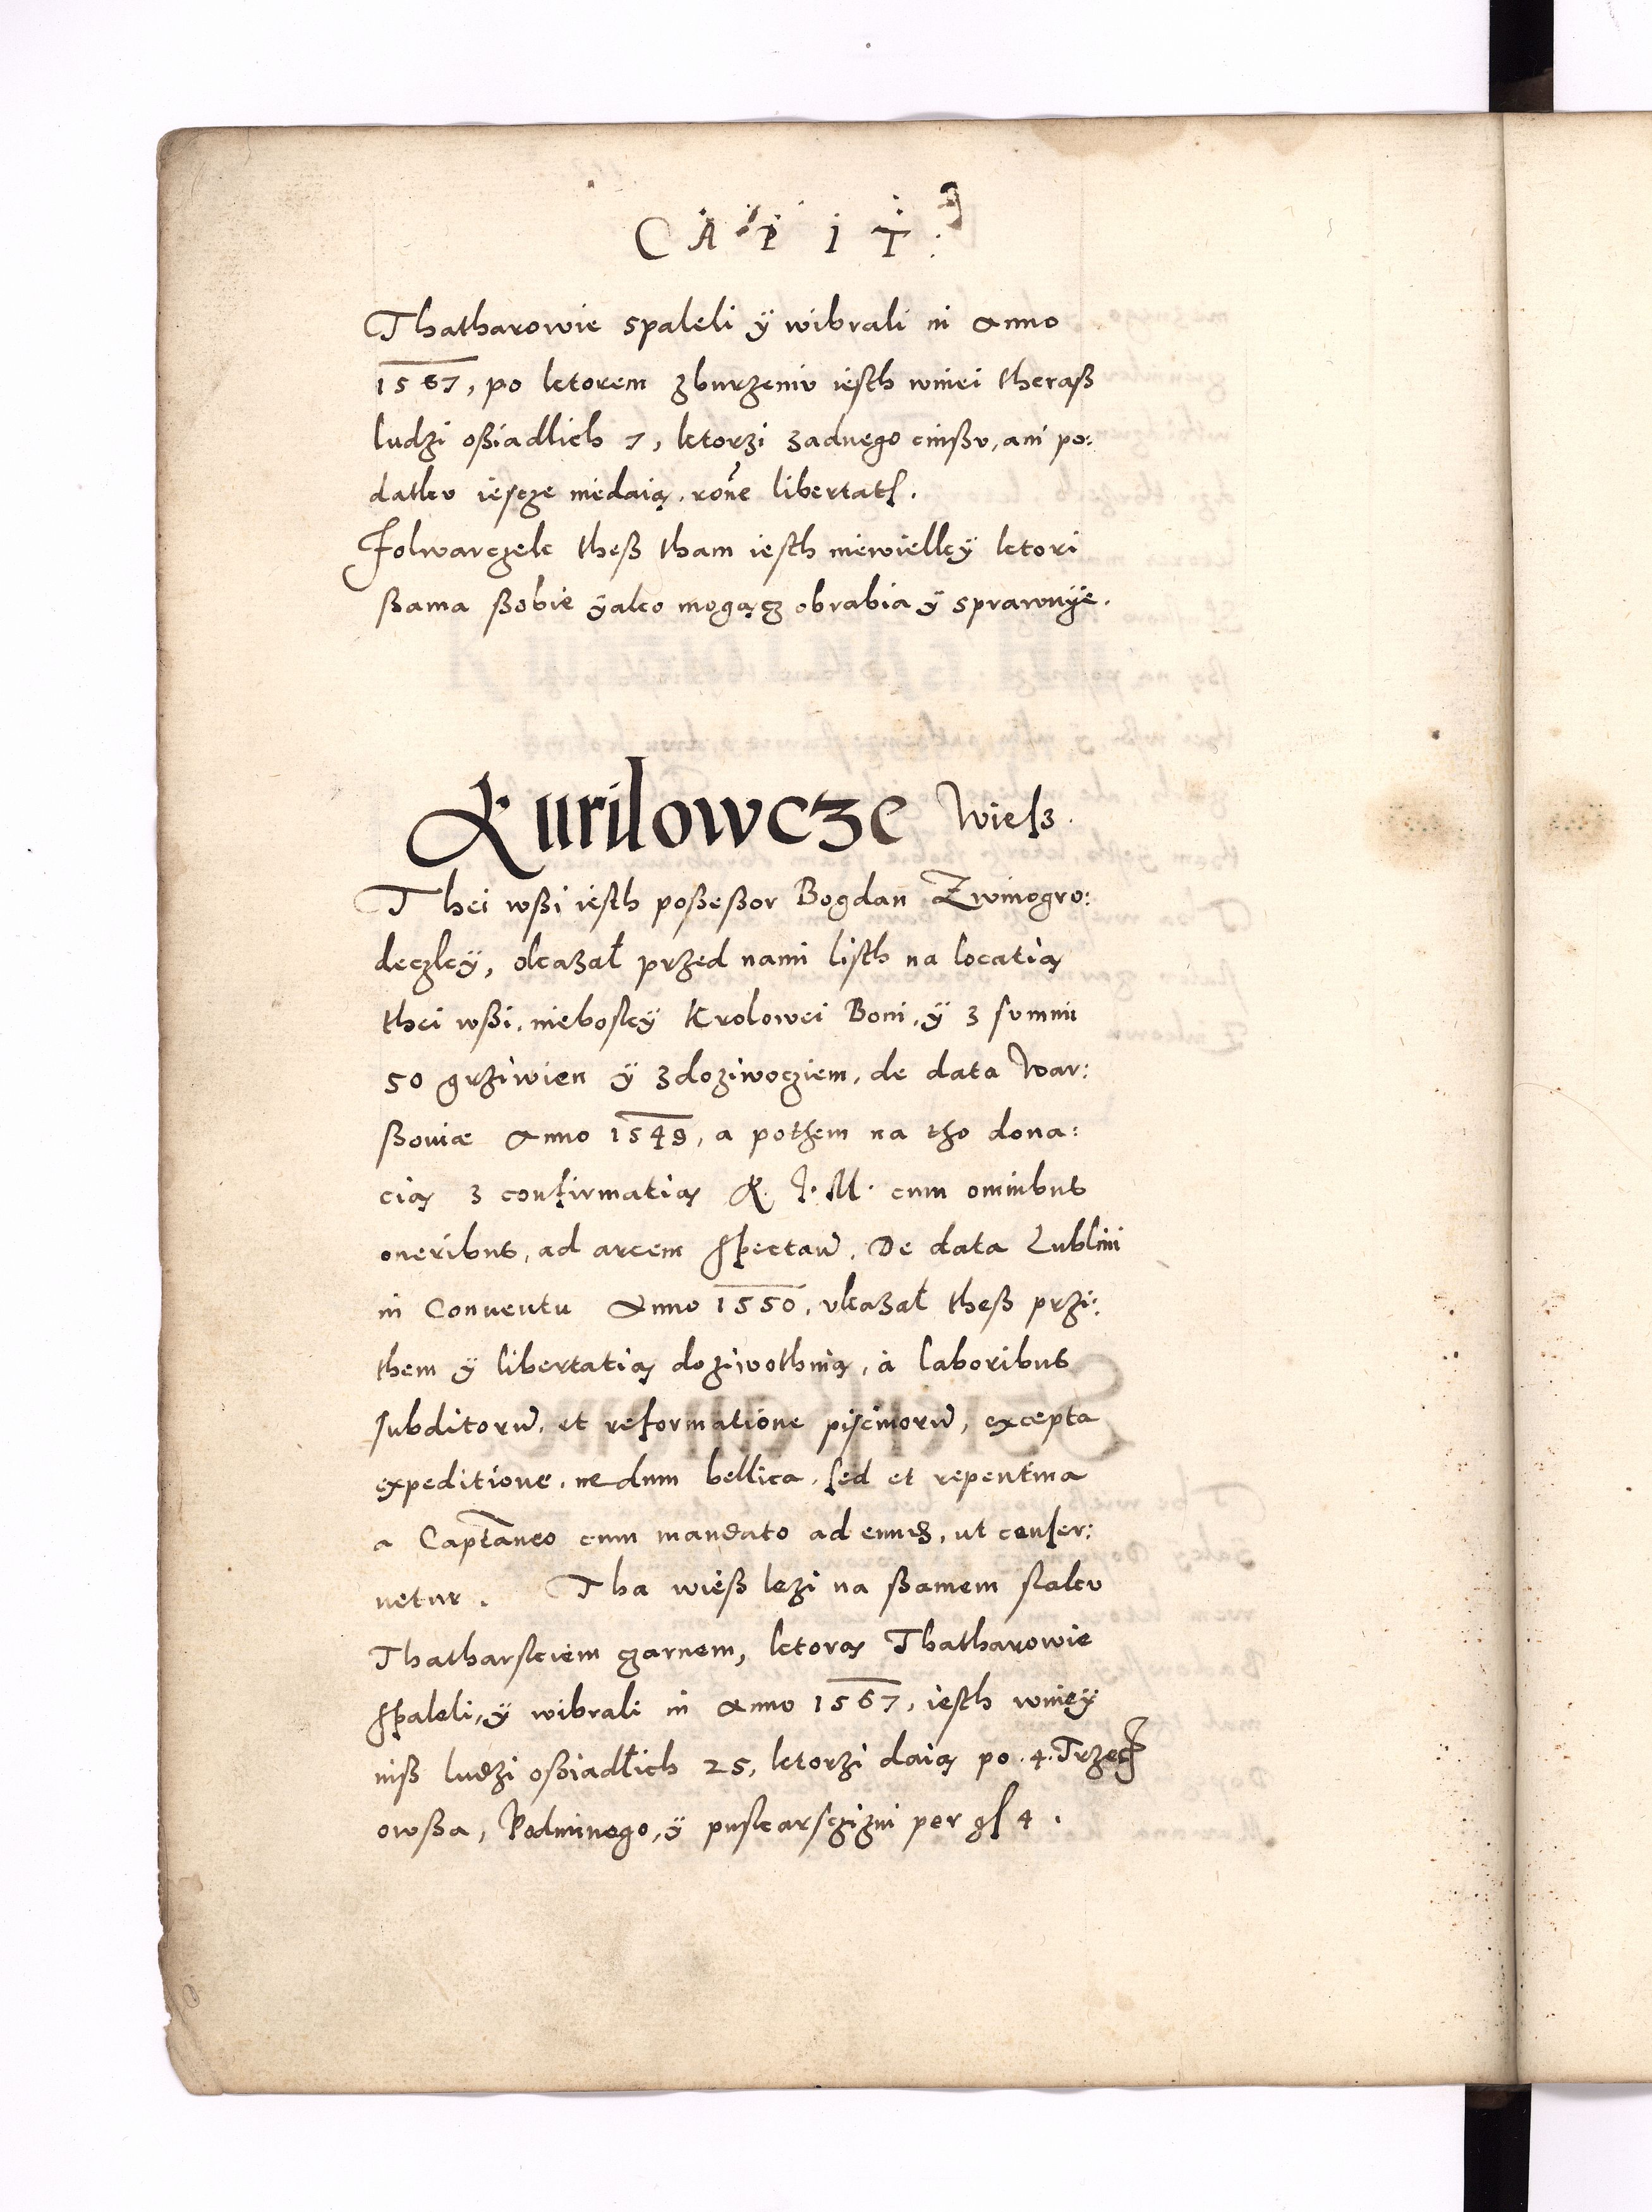 CAPIT.
Thatharowie spaleli ÿ wibrali in Anno
1567, po ktorem zburzeniv iesth wniei theraß
ludzi oßiadlich 7, ktorzi zadnego cinßv, ani po:
datkv iescze niedaią, rone libertatſ.
Folwarczek theß tham iesth niewielkÿ ktori
ßama ßobie ÿako mogącz obrabia ÿ sprawuÿe.
Kurilowcze Wieſz.
Thei wßi iesth poßeßor Bogdan Zwinogro:
deczkÿ, okazał przed nami listh na locatią
thei wßi, nieboskÿ Krolowei Boni, ÿ z summi
50 grziwien ÿ zdoziwocziem, de data War:
ßoviæ Anno 1549, a pothem na tho dona:
cią z confirmatią K. J. M. cum omnibus
oneribus, ad arcem spectan. De data Lublini
in Conventu Anno 1550, vkazał theß przi:
them ÿ libertatią doziwothnią, à laboribus
subditorũ, et reformatione piscinorũ, excepta
expeditione, nedum bellica, sed et repentina
a Captaneo cum mandato ad eundẽ, ut conser:
vetur. Tha wieß lezi na ßamem slakv
Thatharskiem czarnem, ktorą Thatharowie
spaleli, ÿ wibrali in Anno 1567, iesth wnieÿ
niß ludzi oßiadłich 25, ktorzi daią po 4. Trzecz
owßa, Podimnego, ÿ puskarsczizni per gſ 4.